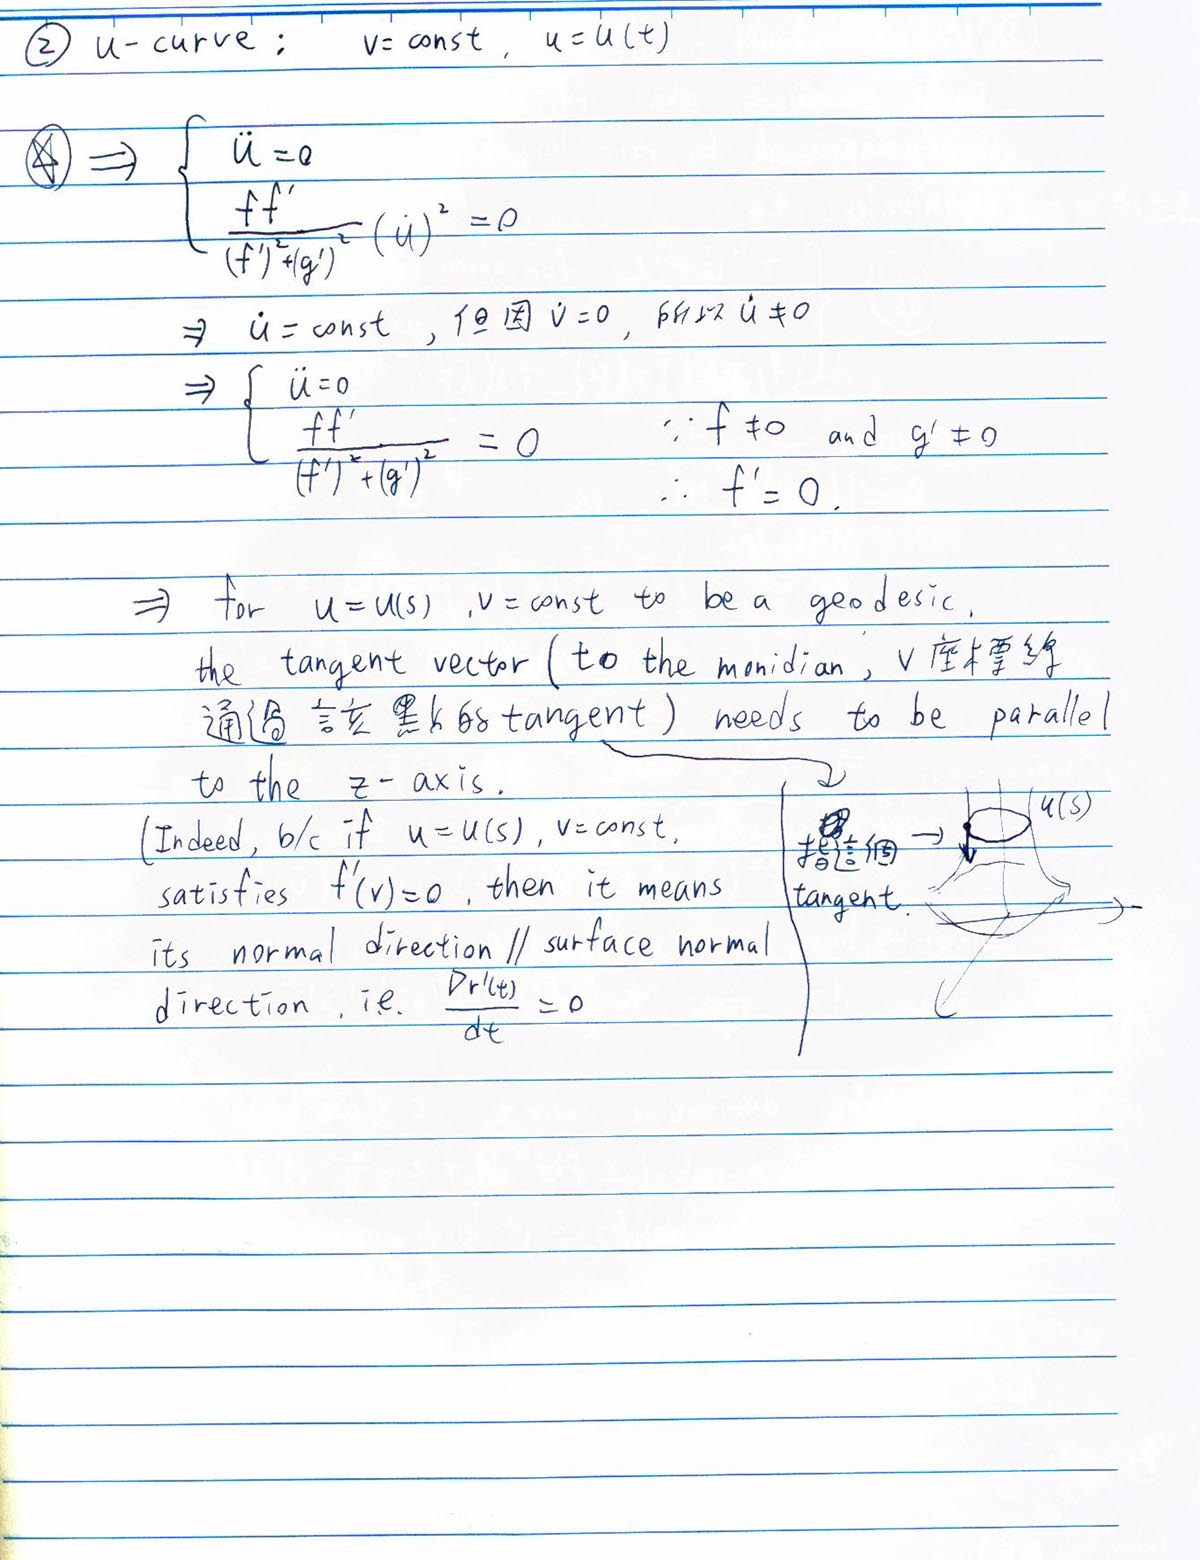 ② u-curve: v=const, u=u(t)
⊛ ⇒ { ü=0
ff'/((f')²+(g')²) (u̇)² =0
⇒ u̇=const, 但因 v̇=0, 所以 u̇≠0
⇒ { ü=0
ff'/((f')²+(g')²) = 0 ∵ f≠0 and g'≠0
∴ f'=0.
⇒ for u=u(s), v=const to be a geodesic,
the tangent vector (to the monidian, v 座標線
通過該點的 tangent) needs to be parallel
to the z-axis.
(Indeed, b/c if u=u(s), v=const,
satisfies f'(v)=0, then it means
its normal direction // surface normal
direction, i.e. Dr'(t)/dt = 0
u(s)
指這個 →
tangent.